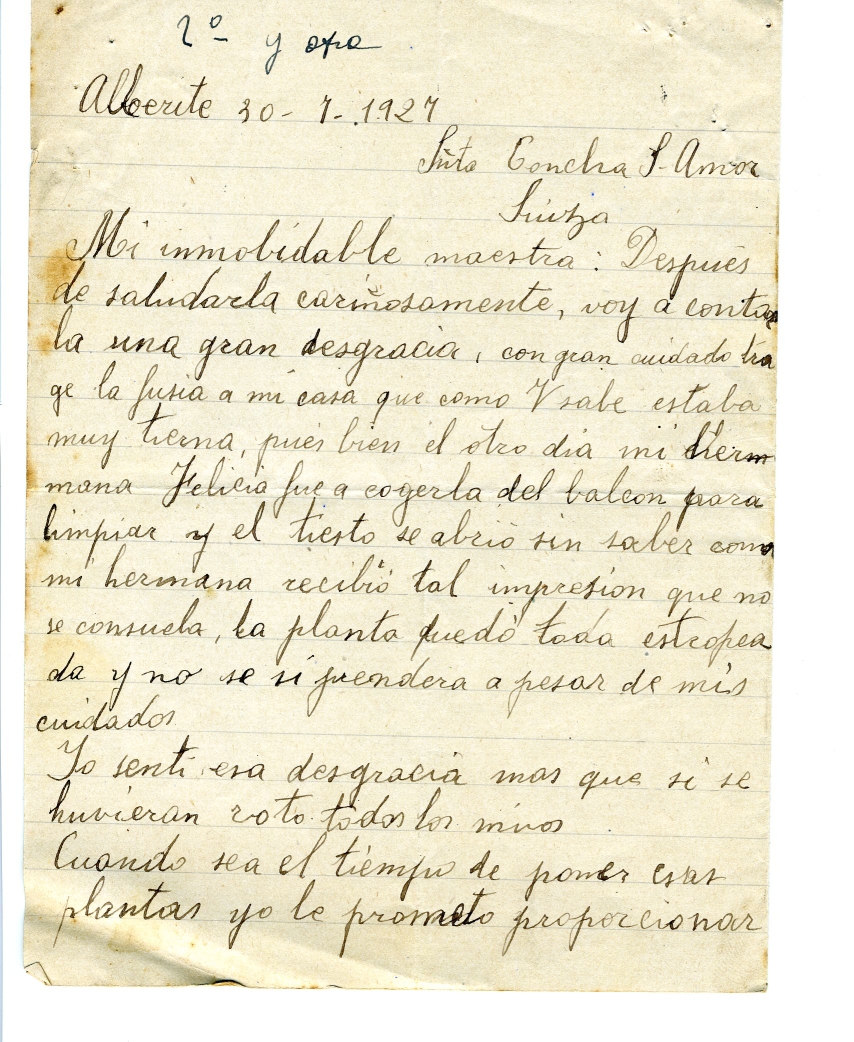 2º y opa
Alberite 30-7-1927
Srita Concha S. Amor
Suiza
Mi inmobidable maestra: Después
de saludarla cariñosamente, voy a contar
la una gran desgracia, con gran cuidado tra
ge la fusia a mi casa que como V sabe estaba
muy tierna, pues bien el otro dia mi herm
mana Felicia fue a cogerla del balcon para
limpiar y el tiesto se abrio sin saber como
mi hermana recibió tal impresion que no
se consuela, la planta quedó toda estropea
da y no se si prendera a pesar de mis
cuidados
Yo senti esa desgracia mas que si se
huvieran roto todos los mios
Cuando sea el tiempo de poner esas
plantas yo le prometo proporcionar